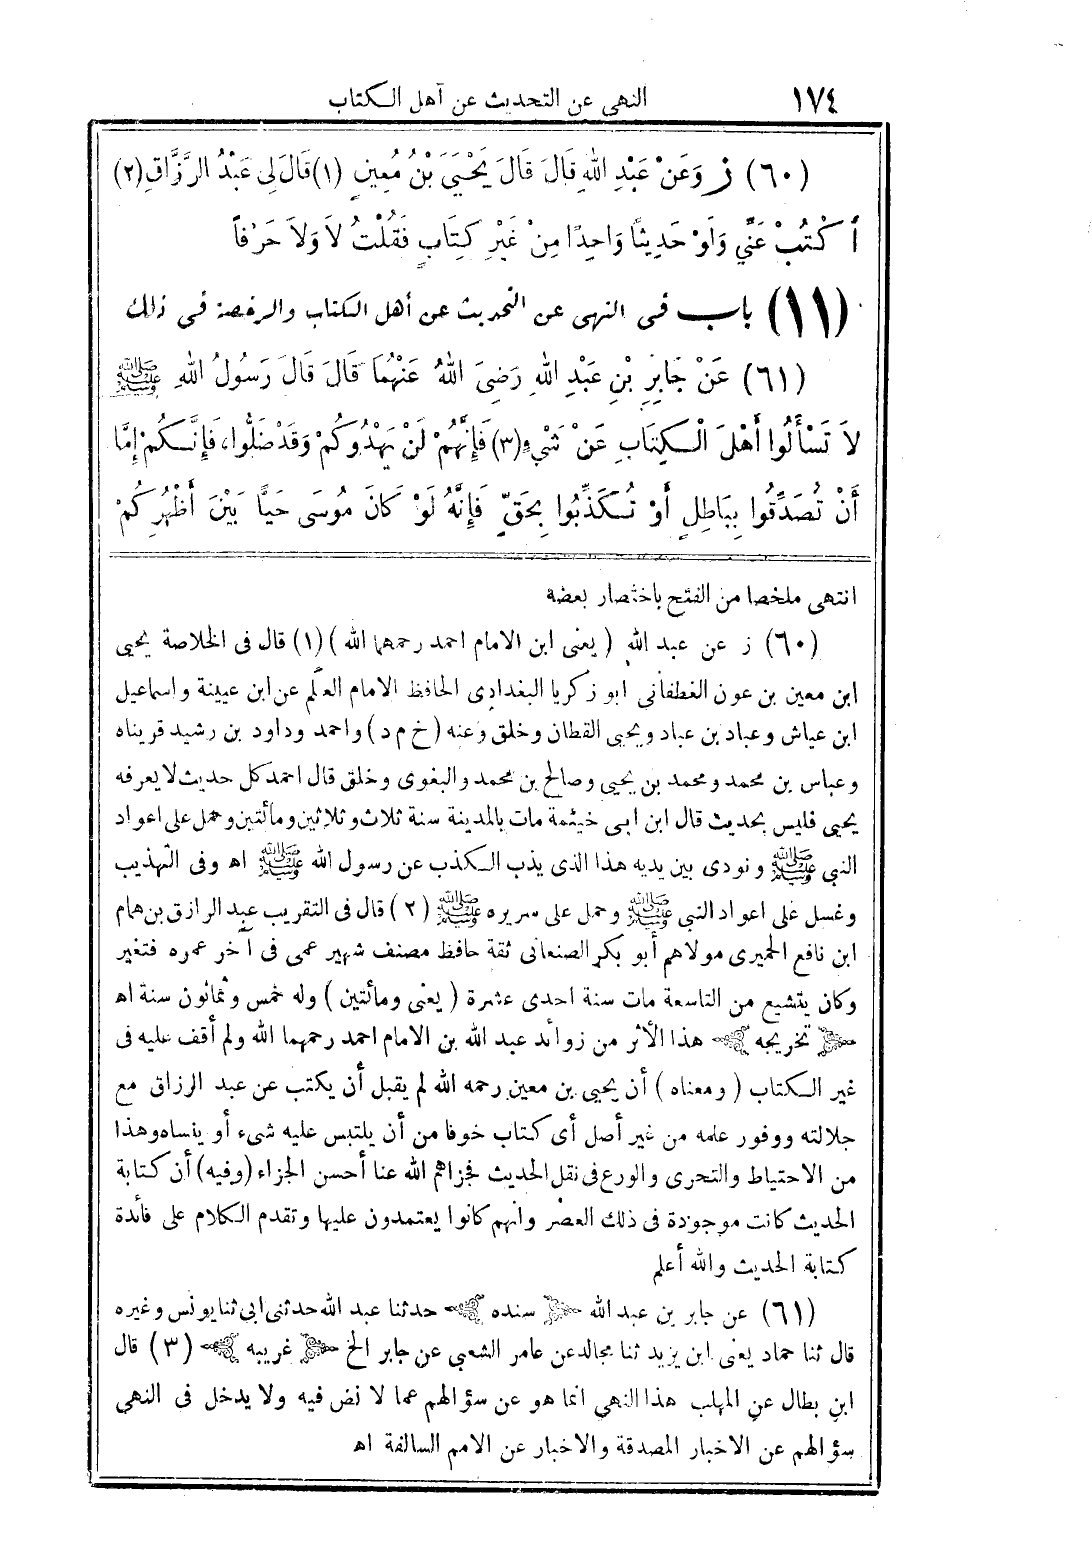 ١٧٤ النهى عن التحديث عن أهل الكتاب
(٦٠) ز وَعَنْ عَبْدِ اللهِ قَالَ قَالَ يَحْيَى بْنُ مُعِينٍ (١) قَالَ لِى عَبْدُ الرَّزَّاقِ (٢)
أُكْتُبْ عَنِّي وَلَوْ حَدِيثًا وَاحِدًا مِنْ غَيْرِ كِتَابٍ فَقُلْتُ لاَ وَلاَ حَرْفًا
(١١) باب فى النهى عن التحديث عن أهل الكتاب والرخصة فى ذلك
(٦١) عَنْ جَابِرِ بْنِ عَبْدِ اللهِ رَضِيَ اللهُ عَنْهُمَا قَالَ قَالَ رَسُولُ اللهِ ﷺ
لاَ تَسْأَلُوا أَهْلَ الْكِتَابِ عَنْ شَيْءٍ (٣) فَإِنَّهُمْ لَنْ يَهْدُوكُمْ وَقَدْ ضَلُّوا، فَإِنَّكُمْ إِمَّا
أَنْ تُصَدِّقُوا بِبَاطِلٍ أَوْ تُكَذِّبُوا بِحَقٍّ فَإِنَّهُ لَوْ كَانَ مُوسَى حَيًّا بَيْنَ أَظْهُرِكُمْ
انتهى ملخصا من الفتح باختصار بعضه
(٦٠) ز عن عبد الله (يعنى ابن الامام احمد رحمهما الله) (١) قال فى الخلاصة يحيى
ابن معين بن عون الغطفانى ابو زكريا البغدادى الحافظ الامام العلم عن ابن عيينة واسماعيل
ابن عياش وعباد بن عباد ويحيى القطان وخلق وعنه (خ م د) واحمد وداود بن رشيد قريناه
وعباس بن محمد ومحمد بن يحيى وصالح بن محمد والبغوى وخلق قال احمد كل حديث لا يعرفه
يحيى فليس بحديث قال ابن ابى خيثمة مات بالمدينة سنة ثلاث وثلاثين ومائتين وحمل على اعواد
النبي ﷺ ونودى بين يديه هذا الذى يذب الكذب عن رسول الله ﷺ اه وفى التهذيب
وغسل على اعواد النبي ﷺ وحمل على سريره ﷺ (٢) قال فى التقريب عبد الرازق بن همام
ابن نافع الحميرى مولاهم أبو بكر الصنعانى ثقة حافظ مصنف شهير عمى فى آخر عمره فتغير
وكان يتشيع من التاسعة مات سنة احدى عشرة (يعنى ومائتين) وله خمس وثمانون سنة اه
﴿تخريجه﴾ هذا الأثر من زوائد عبد الله بن الامام احمد رحمهما الله ولم أقف عليه فى
غير الكتاب (ومعناه) أن يحيى بن معين رحمه الله لم يقبل أن يكتب عن عبد الرزاق مع
جلالته ووفور علمه من غير أصل أى كتاب خوفا من أن يلتبس عليه شىء أو ينساه وهذا
من الاحتياط والتحرى والورع فى نقل الحديث فجزاهم الله عنا أحسن الجزاء (وفيه) أن كتابة
الحديث كانت موجودة فى ذلك العصر وانهم كانوا يعتمدون عليها وتقدم الكلام على فائدة
كتابة الحديث والله أعلم
(٦١) عن جابر بن عبد الله ﴿سنده﴾ حدثنا عبد الله حدثنى ابى ثنا يونس وغيره
قال ثنا حماد يعنى ابن يزيد ثنا مجالد عن عامر الشعبي عن جابر الخ ﴿غريبه﴾ (٣) قال
ابن بطال عن المهلب هذا النهي انما هو عن سؤالهم عما لا نص فيه ولا يدخل فى النهى
سؤالهم عن الاخبار المصدقة والاخبار عن الامم السالفة اه